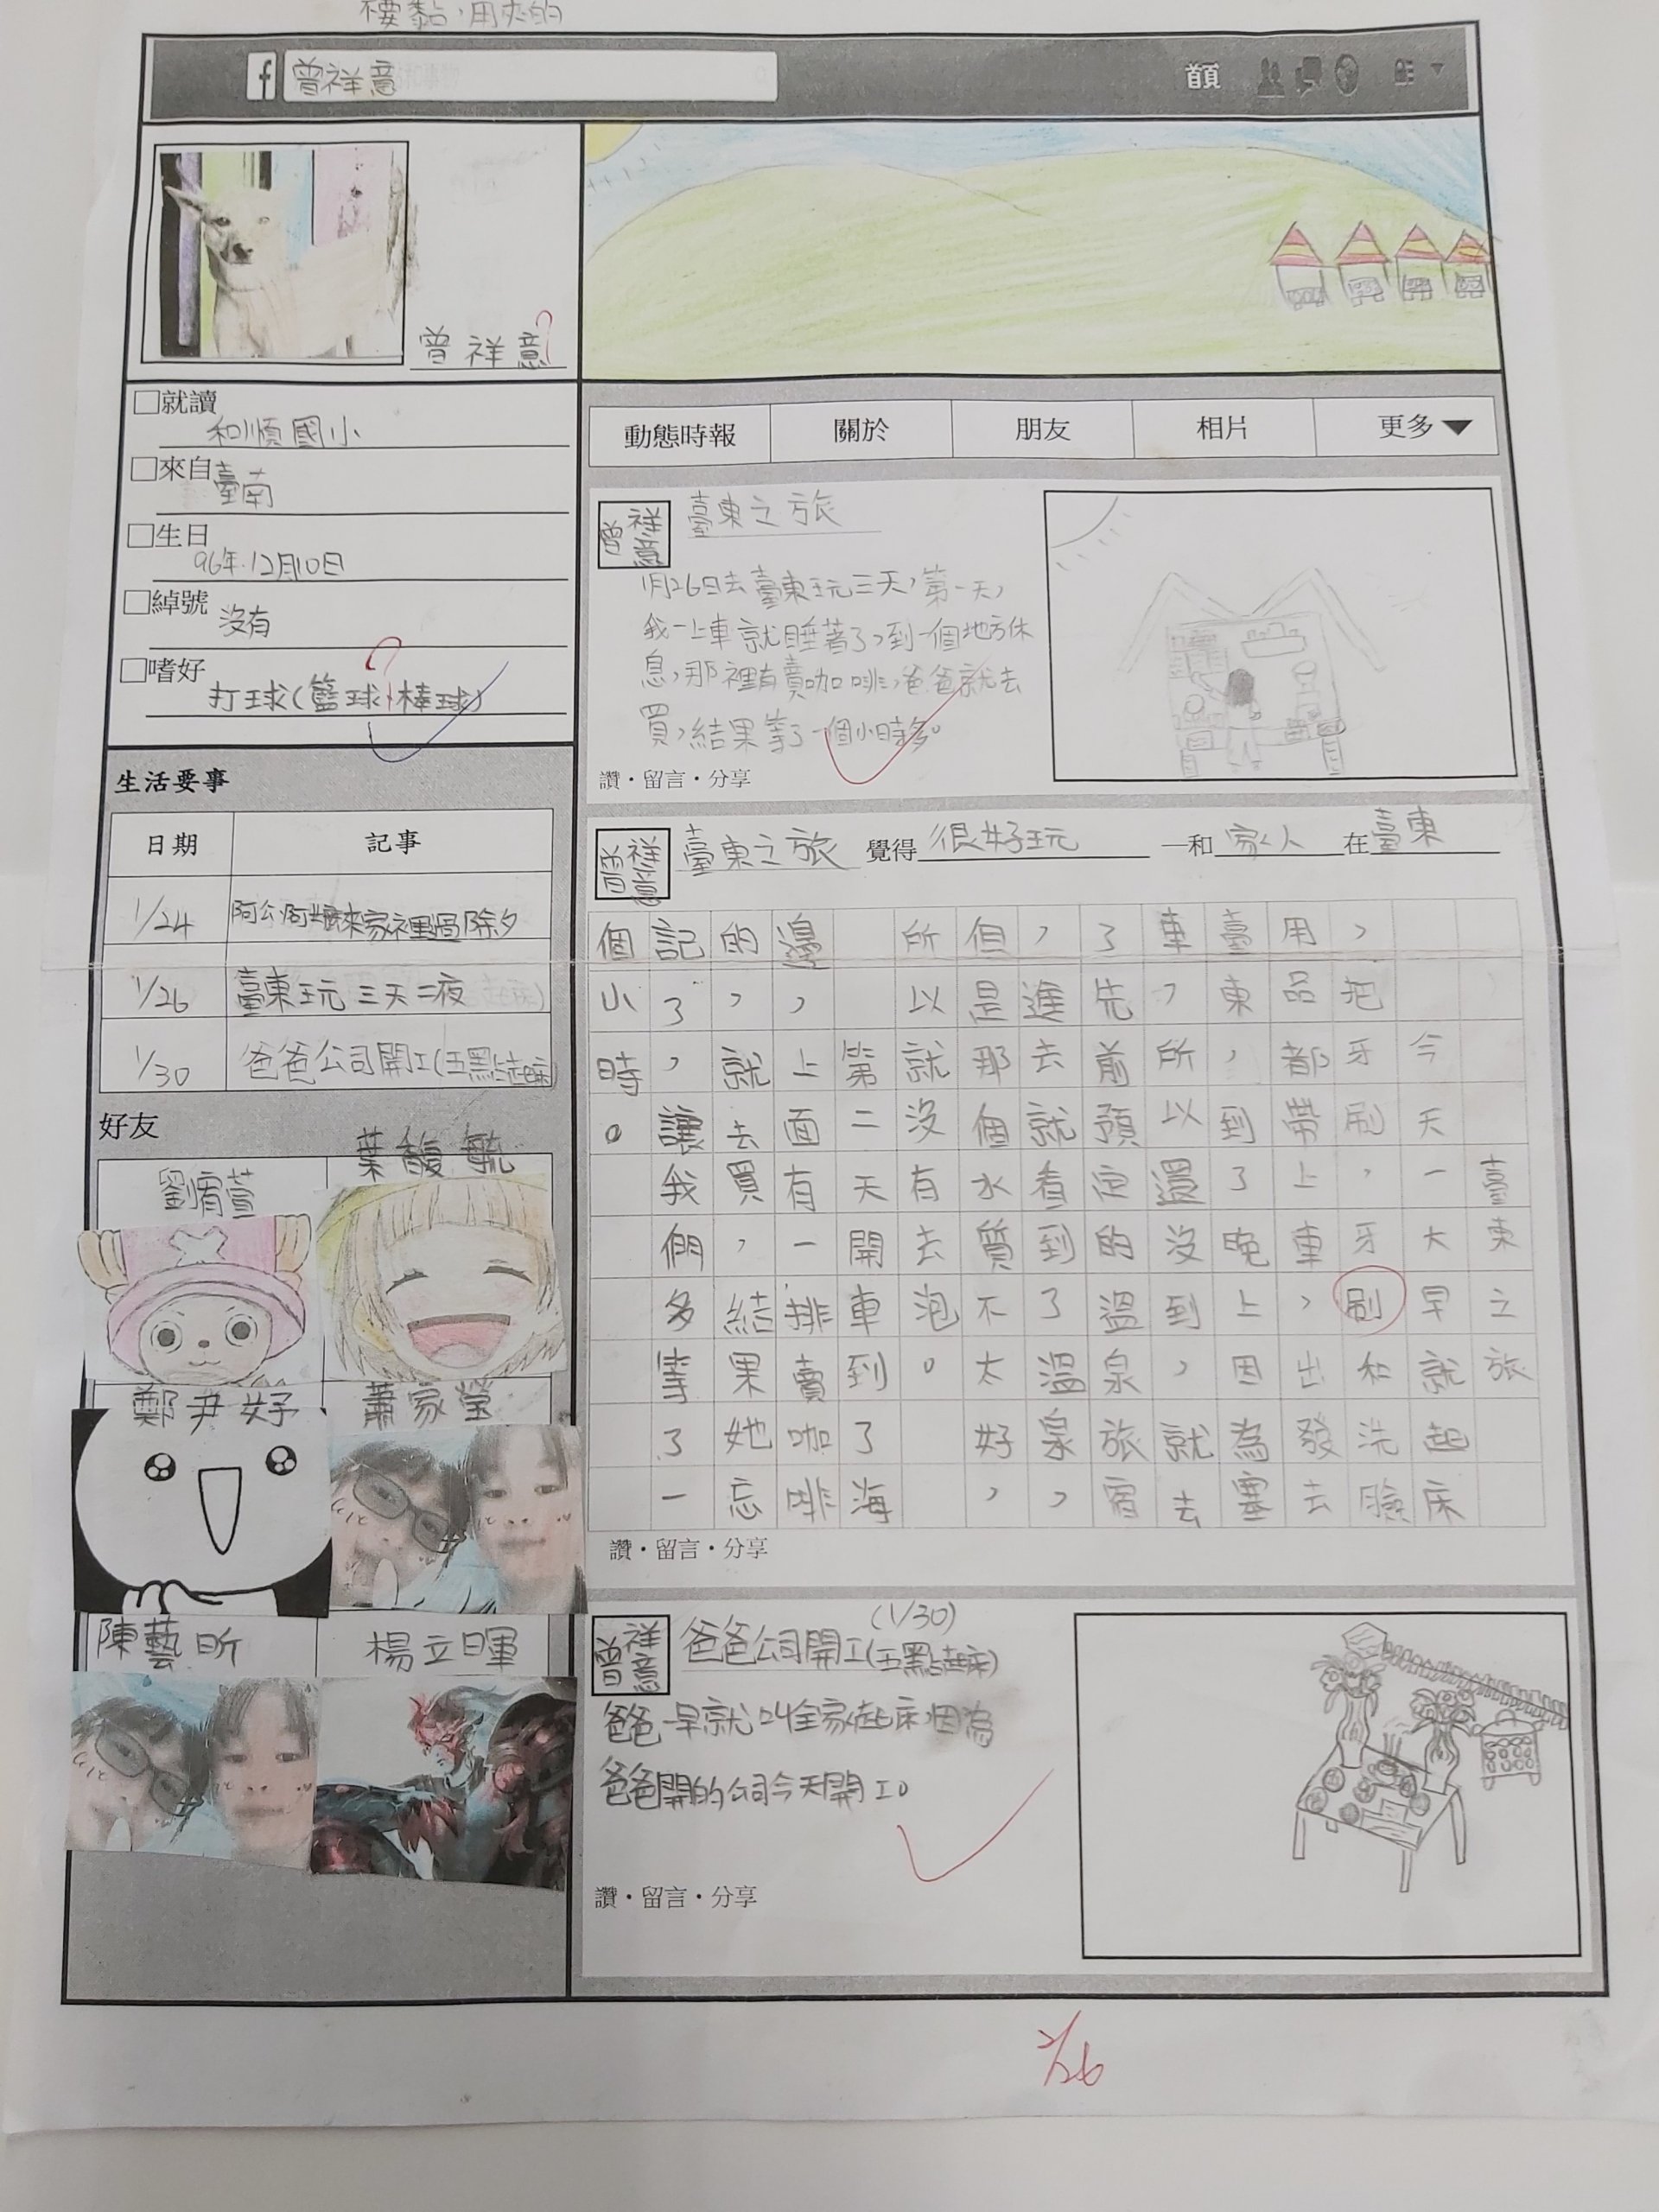 不要黏，用夾的
曾祥意
首頁
曾祥意
就讀
和順國小
來自
臺南
生日
96年12月10日
綽號
沒有
嗜好
打球(籃球、棒球)
生活要事
日期 記事
1/24 阿公阿嬤來家裡過除夕
1/26 臺東玩三天二夜
1/30 爸爸公司開工(五點起床)
好友
劉宥萱 葉馥毓
鄭尹妤 蕭家瑩
陳藝昕 楊立暉
動態時報 關於 朋友 相片 更多
曾祥意 臺東之旅
1月26日去臺東玩三天，第一天，
我一上車就睡著了，到一個地方休
息，那裡有賣咖啡，爸爸就去
買，結果等了一個小時多。
讚・留言・分享
曾祥意 臺東之旅 覺得 很好玩 —和 家人 在 臺東
臺東之旅
今天一大早就起床
，把牙刷，牙刷和洗臉
用品都帶上車，出發去
臺東，到了晚上因為塞
車，所以還沒到，就去
了先前預定的溫泉旅宿
，進去就看到了溫泉，
但是那個水質不太好，
所以就沒有去泡。
第二天開車到了海
邊，上面有一排賣咖啡
的，就去買，結果她忘
記了，讓我們多等了一
個小時。
讚・留言・分享
曾祥意 爸爸公司開工(五點起床) (1/30)
爸爸一早就叫全家起床，因為
爸爸開的公司今天開工。
讚・留言・分享
2/26